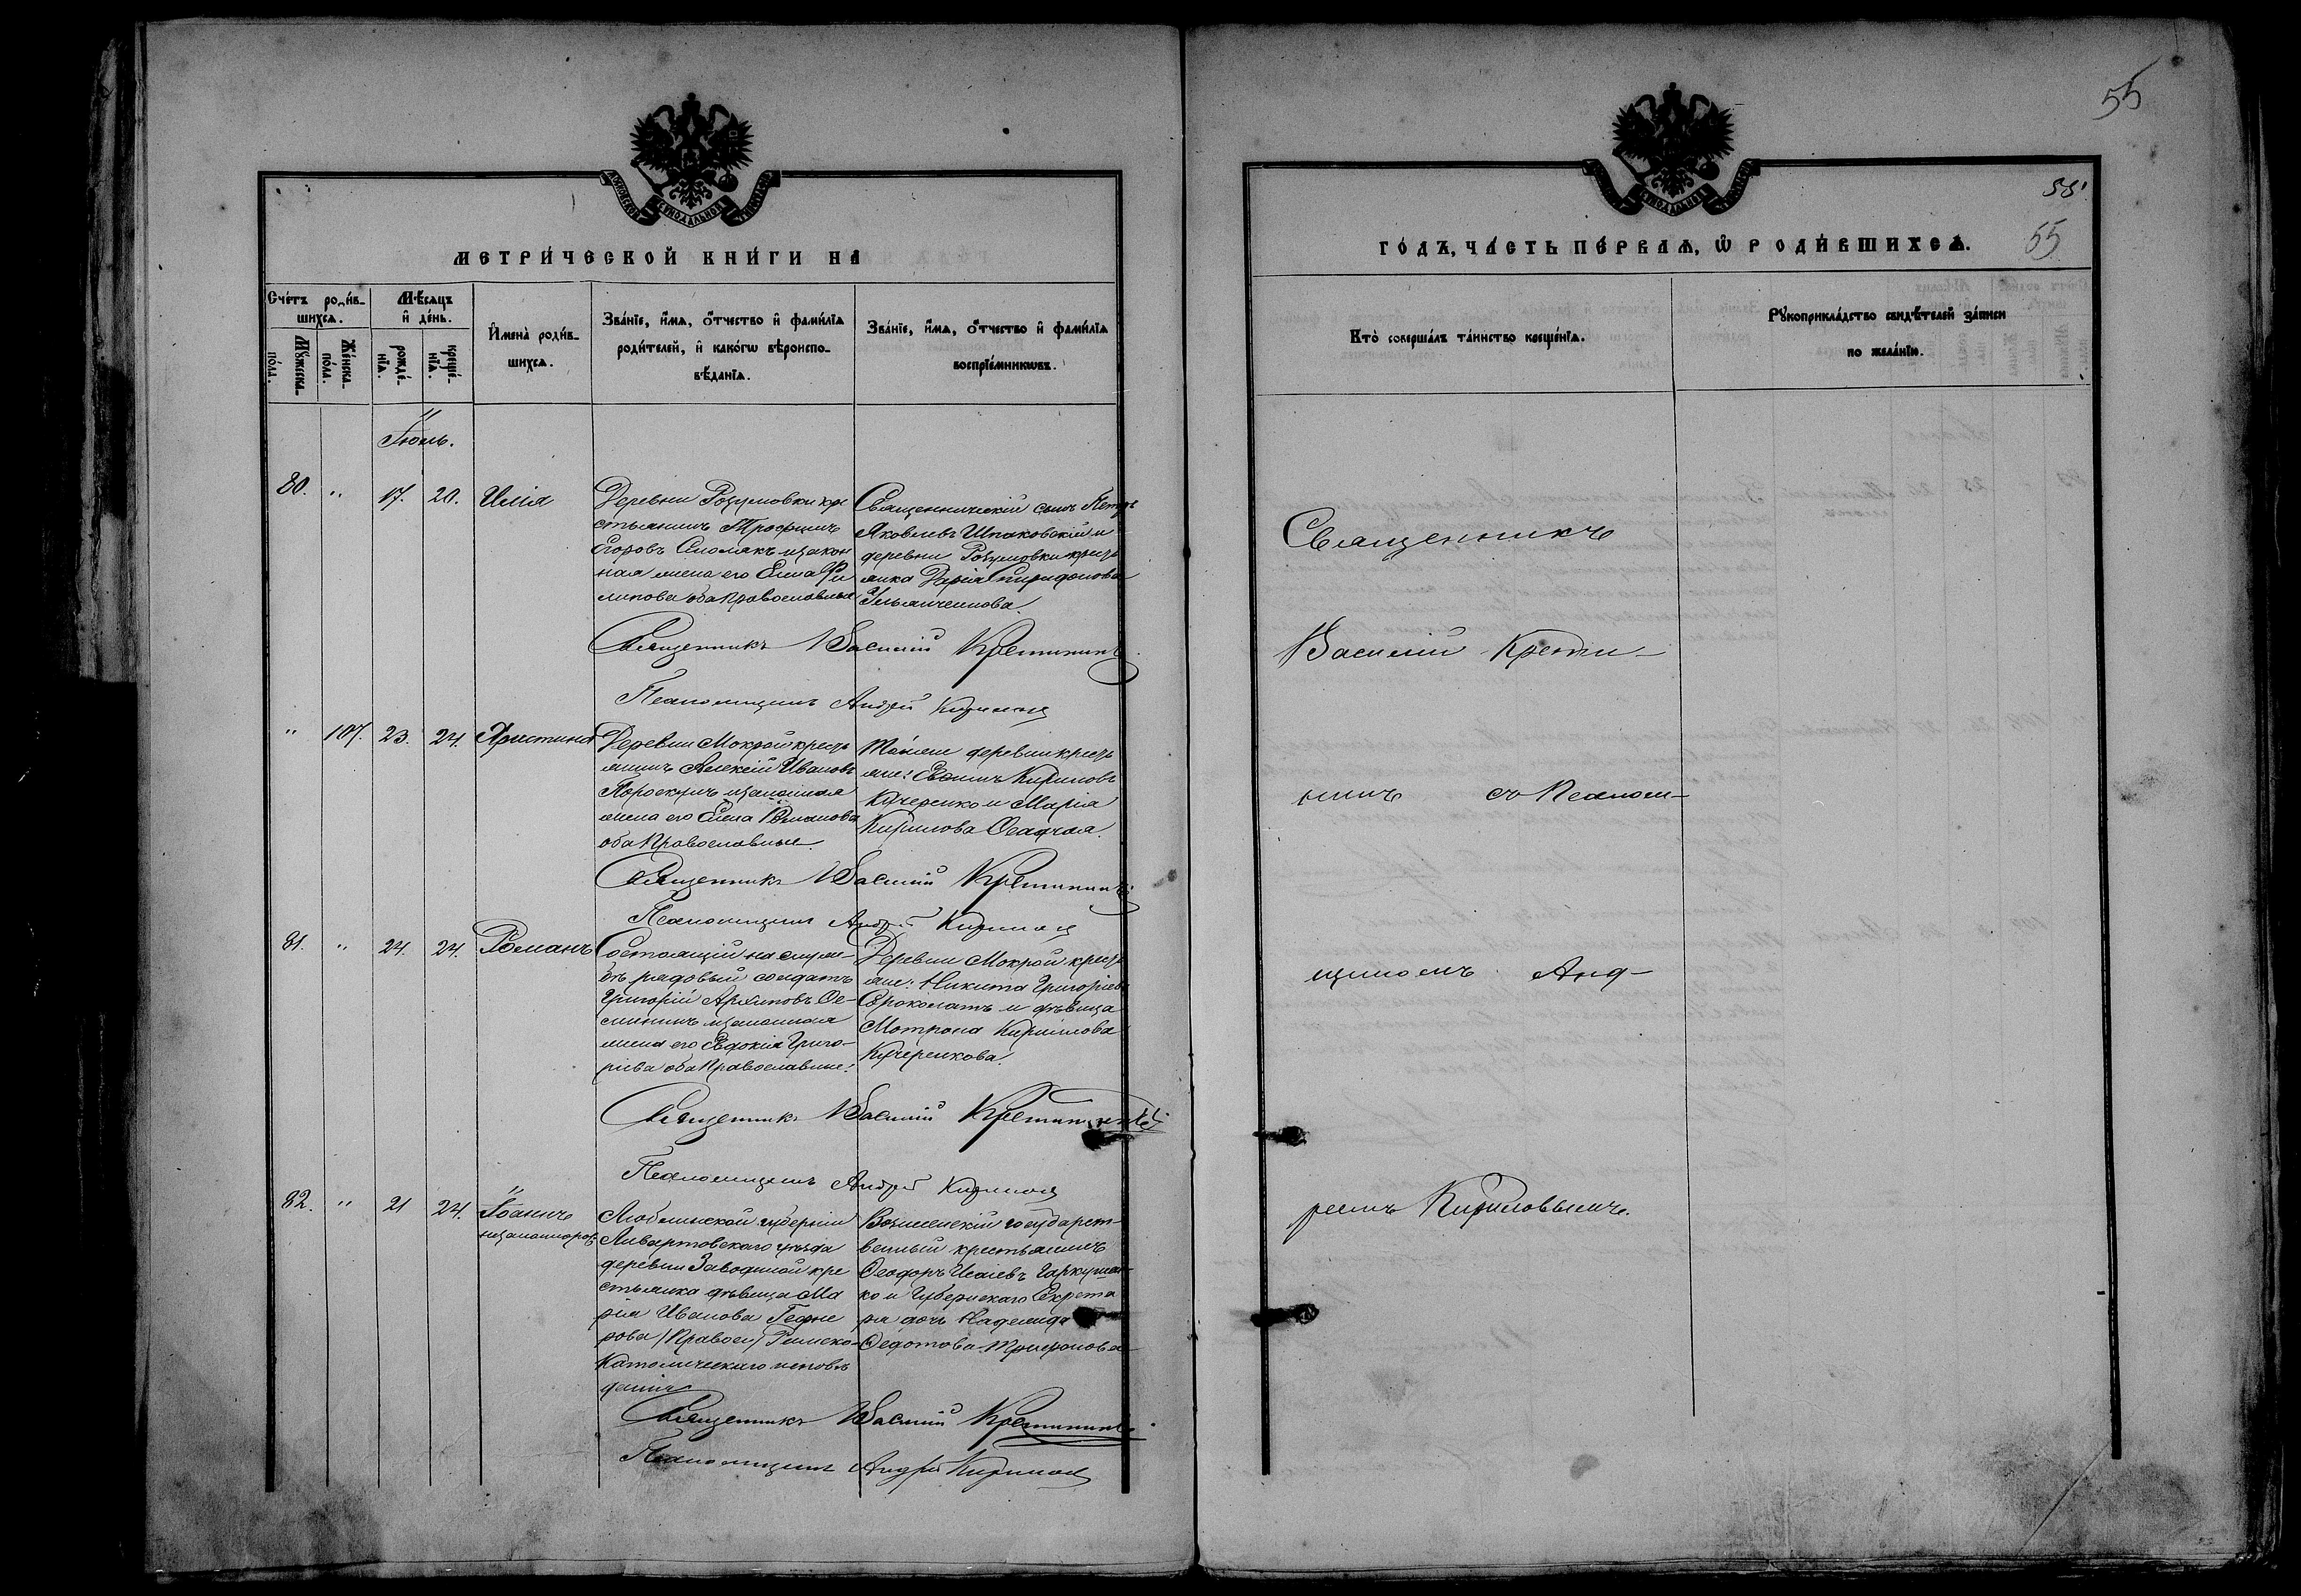 55
МОСКОВСКОЙ СѴНОДАЛЬНОЙ ТИПОГРАФІИ
МЕТРИ́ЧЕСКОЙ КНИ́ГИ НА
Сче́тъ роди́в-
шихсѧ.
Мꙋ́жеска-
по́ла.
Же́нска-
по́ла.
Мѣ́сѧцъ
и҆ де́нь.
рожде́-
нїѧ.
креще́-
нїѧ.
И҆мена̀ роди́в-
шихсѧ.
Зва́нїе, и҆́мѧ, ѻ҆́тчество и҆ фами́лїѧ
роди́телей, и҆ како́гѡ вѣроиспо-
вѣ́данїѧ.
Зва́нїе, и҆́мѧ, ѻ҆́тчество и҆ фами́лїѧ
воспрїе́мникѡвъ.
Іюль.
80. " 17. 20. Илія
Деревни Розумовки кре
стьянинъ Трофимъ
Егоровъ Слюмакъ и закон
ная жена его Елена Фи
липова оба Православные
Священническій сынъ Петръ
Яковлевъ Шпаковскій и
деревни Розумовки кресть
янка Дарія Спиридонова
Ульянченкова.
Священникъ Василій Крещининъ
Псаломщикъ Андрей Кириловъ
" 107. 23. 24. Христина
Деревни Мокрой кресть
янинъ Алексій Ивановъ
и законная
жена его Елена Романова
оба Православные.
Той же деревни кресть
яне: Кириловъ
Кучеренко и Марія
Кирилова Осадчая.
Священникъ Василій Крещининъ
Псаломщикъ Андрей Кириловъ
81. " 24. 24. Романъ
Состоящій на служ-
бѣ рядовый солдатъ
Григорій Архиповъ Ое-
и законная
жена его Евдокія Григо-
ріева оба Православные.
Деревни Мокрой кресть
яне: Никита Григоріевъ
и дѣвица
Мотрона Кириллова
Кучеренкова.
Священникъ Василій Крещининъ
Псаломщикъ Андрей Кириловъ
82. " 21 24. Іоаннъ
незаконнорож
Люблинской губерніи
Любартовскаго уѣзда
деревни Заводной кре
стьянка дѣвица Ма
рія Иванова
рова /Правос/ Римско-
Католическаго исповѣ
данія
Вознесенскій государст-
венный крестьянинъ
Ѳеодоръ Исаіевъ Гаркушен-
ко и Губернскаго Секрета
ря дочь Надежда
Ѳедотова Трифонова
Священникъ Василій Крещининъ
Псаломщикъ Андрей Кириловъ
55
МОСКОВСКОЙ СѴНОДАЛЬНОЙ ТИПОГРАФІИ
ГО́ДЪ, ЧА́СТЬ ПЕ́РВАѦ, Ѡ҆ РОДИ́ВШИХСѦ.
55
Кто̀ соверша́лъ та́инство креще́нїѧ.
Рꙋкоприкла́дство свидѣ́телей за́писи
по жела́нїю.
Священникъ
Василій Крещи-
нинъ съ Псалом-
щикомъ Анд-
реемъ Кириловымъ.